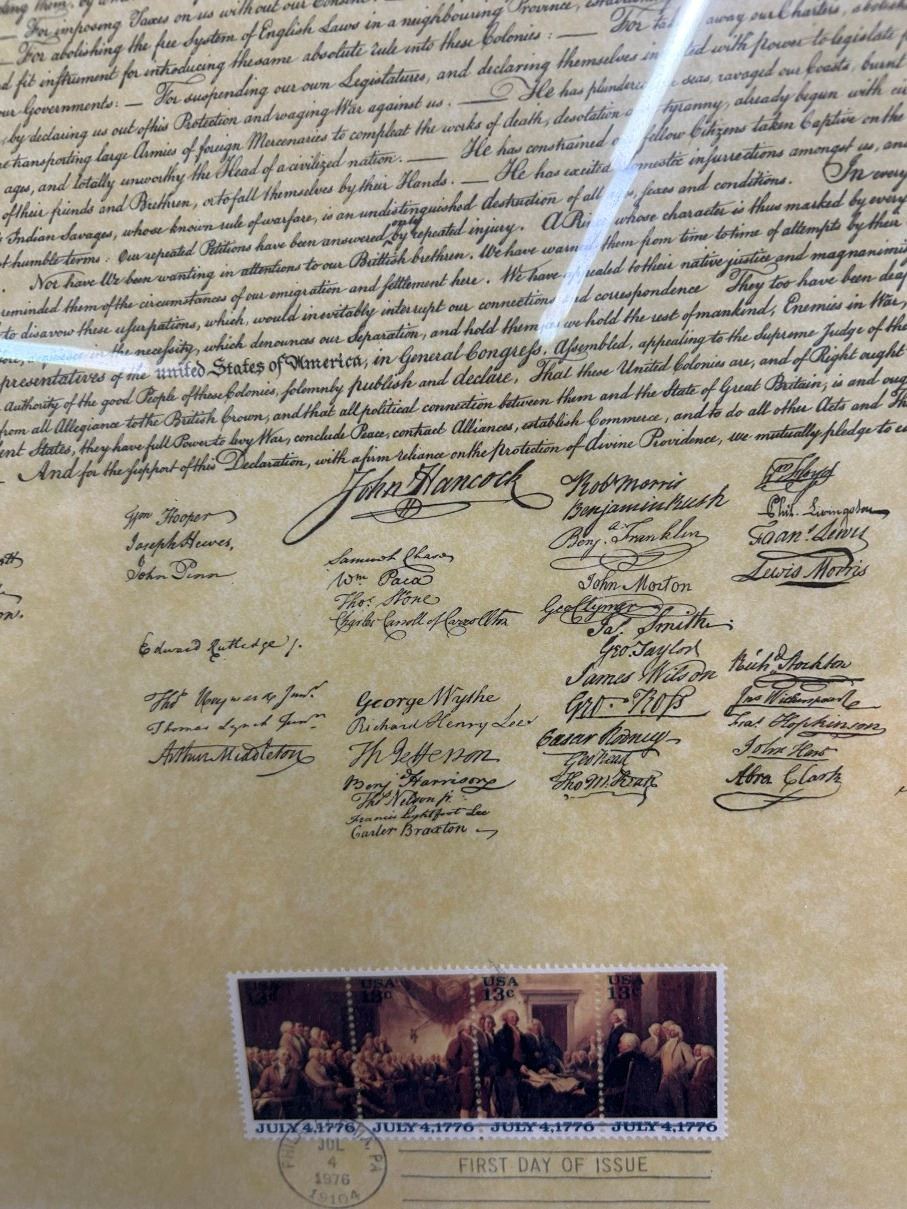 — For imposing Taxes on us without our Consent
— For abolishing the free System of English Laws in a neighbouring Province,
— For away our Charters,
d fit instrument for introducing the same absolute rule into these Colonies : —
ur Governments : — For suspending our own Legislatures, and declaring themselves in ted with power to legislate
by declaring us out of his Protection and waging War against us. — He has plunder seas, ravaged our Coasts, burnt
transporting large Armies of foreign Mercenaries to compleat the works of death, desolation tyranny, already begun with
ages, and totally unworthy the Head of a civilized nation. — He has constrained fellow Citizens taken Captive on the
of their friends and Brethren, or to fall themselves by their Hands. — He has excited domestic insurrections amongst us, an
Indian Savages, whose known rule of warfare, is an undistinguished destruction of all sexes and conditions. In every
t humble terms : Our repeated Petitions have been answered only by repeated injury. A Prin whose character is thus marked by every
Nor have We been wanting in attentions to our Brittish brethren. We have warned them from time to time of attempts by their
reminded them of the circumstances of our emigration and settlement here. We have appealed to their native justice and magnanimi
to disavow these usurpations, which, would inevitably interrupt our connections and correspondence They too have been deaf
the necessity, which denounces our Separation, and hold them, as we hold the rest of mankind, Enemies in War,
presentatives of the united States of America, in General Congress, Assembled, appealing to the Supreme Judge of the
Authority of the good People of these Colonies, solemnly publish and declare, That these United Colonies are, and of Right ought
from all Allegiance to the British Crown, and that all political connection between them and the State of Great Britain, is and oug
ent States, they have full Power to levy War, conclude Peace, contract Alliances, establish Commerce, and to do all other Acts and Th
And for the support of this Declaration, with a firm reliance on the Protection of divine Providence, we mutually pledge to
John Hancock
Wm Hooper
Joseph Hewes,
John Penn
Edward Rutledge /.
Thos Heyward Junr.
Thomas Lynch Junr.
Arthur Middleton
Samuel Chase
Wm Paca
Thos. Stone
Charles Carroll of Carrollton
George Wythe
Richard Henry Lee
Th Jefferson
Benj Harrison
Thos Nelson jr.
Francis Lightfoot Lee
Carter Braxton
Robt Morris
Benjamin Rush
Benja. Franklin
John Morton
Geo Clymer
Jas. Smith.
Geo. Taylor
James Wilson
Geo. Ross
Caesar Rodney
Geo Read
Tho M:Kean
Wm Floyd
Phil. Livingston
Frans. Lewis
Lewis Morris
Richd Stockton
Jno Witherspoon
Fras. Hopkinson
John Hart
Abra Clark
USA 13c
USA 13c
USA 13c
USA 13c
JULY 4, 1776
JULY 4, 1776
JULY 4, 1776
JULY 4, 1776
PHILADELPHIA, PA
JUL
4
1976
19104
FIRST DAY OF ISSUE